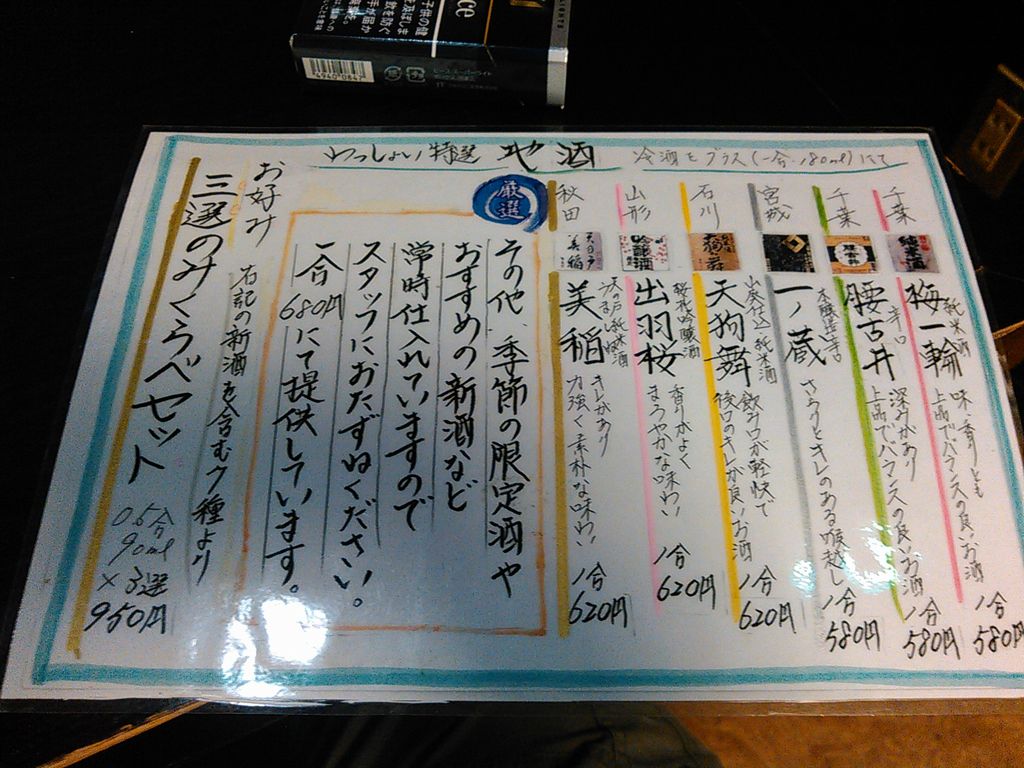 わっしょい特選 地酒 冷酒をグラス(一合・180ml)にて
千葉
純米酒
梅一輪
味・香りとも
上品でバランスの良いお酒
一合
580円
千葉
本醸造辛口
腰古井
深みがあり
上品でバランスの良いお酒
一合
580円
宮城
一ノ蔵
さらりとキレのある喉越し
一合
580円
石川
山廃仕込 純米酒
天狗舞
飲み口が軽快で
後口のキレが良いお酒
一合
620円
山形
吟醸酒
出羽桜
香りがよく
まろやかな味わい
一合
620円
秋田
美稲
キレがあり
力強く素朴な味わい
一合
620円
厳選
その他、季節の限定酒や
おすすめの新酒など
常時仕入れていますので
スタッフにおたずねください。
一合680円にて提供しています。
お好み
右記の新酒を含む7種より
三選のみくらべセット
0.5合
90ml
×3選
950円
49400847